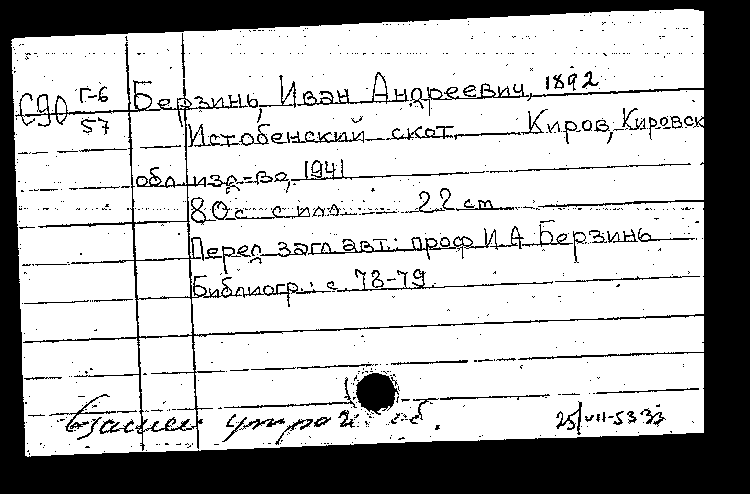 С90 Г-6
57
Берзинь, Иван Андреевич, 1892
Истобенский скот. Киров, Кировск
обл. изд-во, 1941
80с. с илл. 22 cm
Перед загл. авт.: проф. И.А. Берзинь
Библиогр.: с. 78-79.
Взамен утрач. об. 25/VII-53